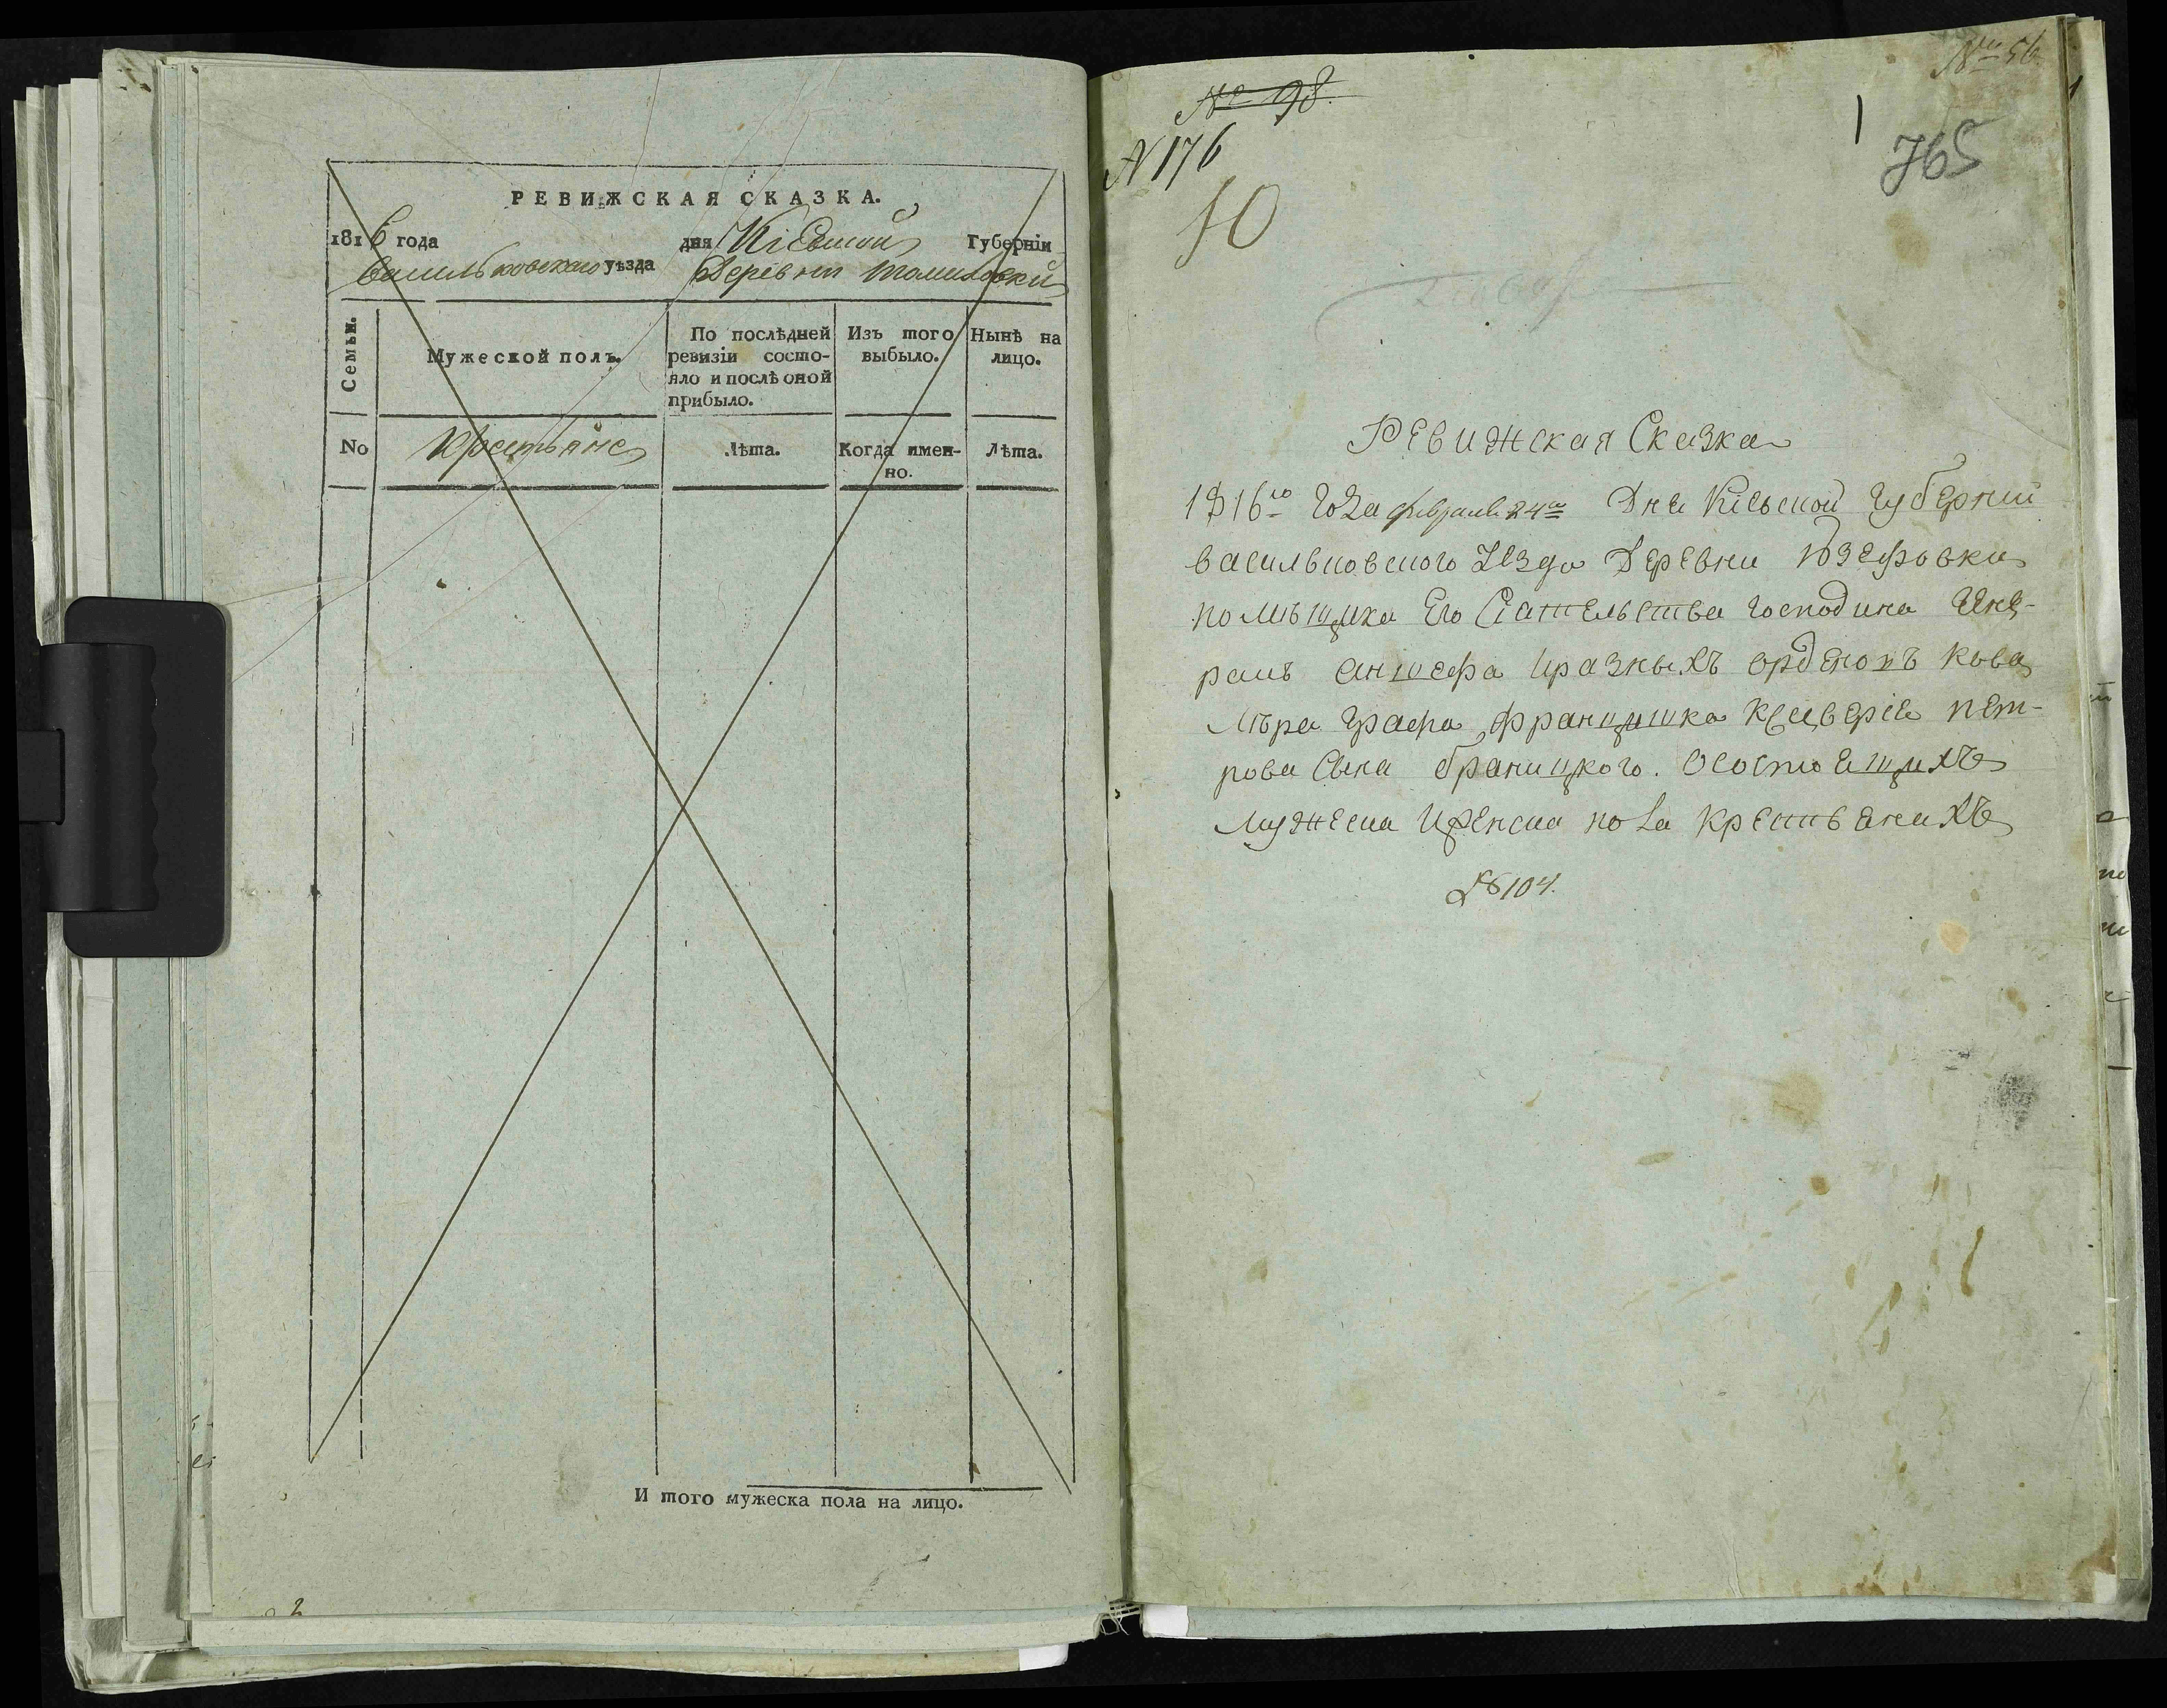 РЕВИЖСКАЯ СКАЗКА.
1816 года дня Кіевской Губерніи
Васильковскаго уѣзда Деревни Томиловки
Семьи. Мужеской полъ. По послѣдней ревизіи состо-яло и послѣ оной прибыло. Изъ того выбыло. Нынѣ на лицо.
No Крестьяне Лѣта. Когда имен-но. Лѣта.
И того мужеска пола на лицо.
№ 98.
N 176
10
№ 56
1
765
Ревижская Сказка
1816го Года февраля 24го Дня Кіевской Губернии
васильковского уезда Деревни Юзефовки
помѣщика Его Сіательства Господина Гене-
ралъ аншефа и разныхъ орденовъ кова
лѣра Графа францишка Ксаверіа пет-
рова сына браницкого. О состоящихъ
мужеска и женска пола крестьянахъ
№ 104.